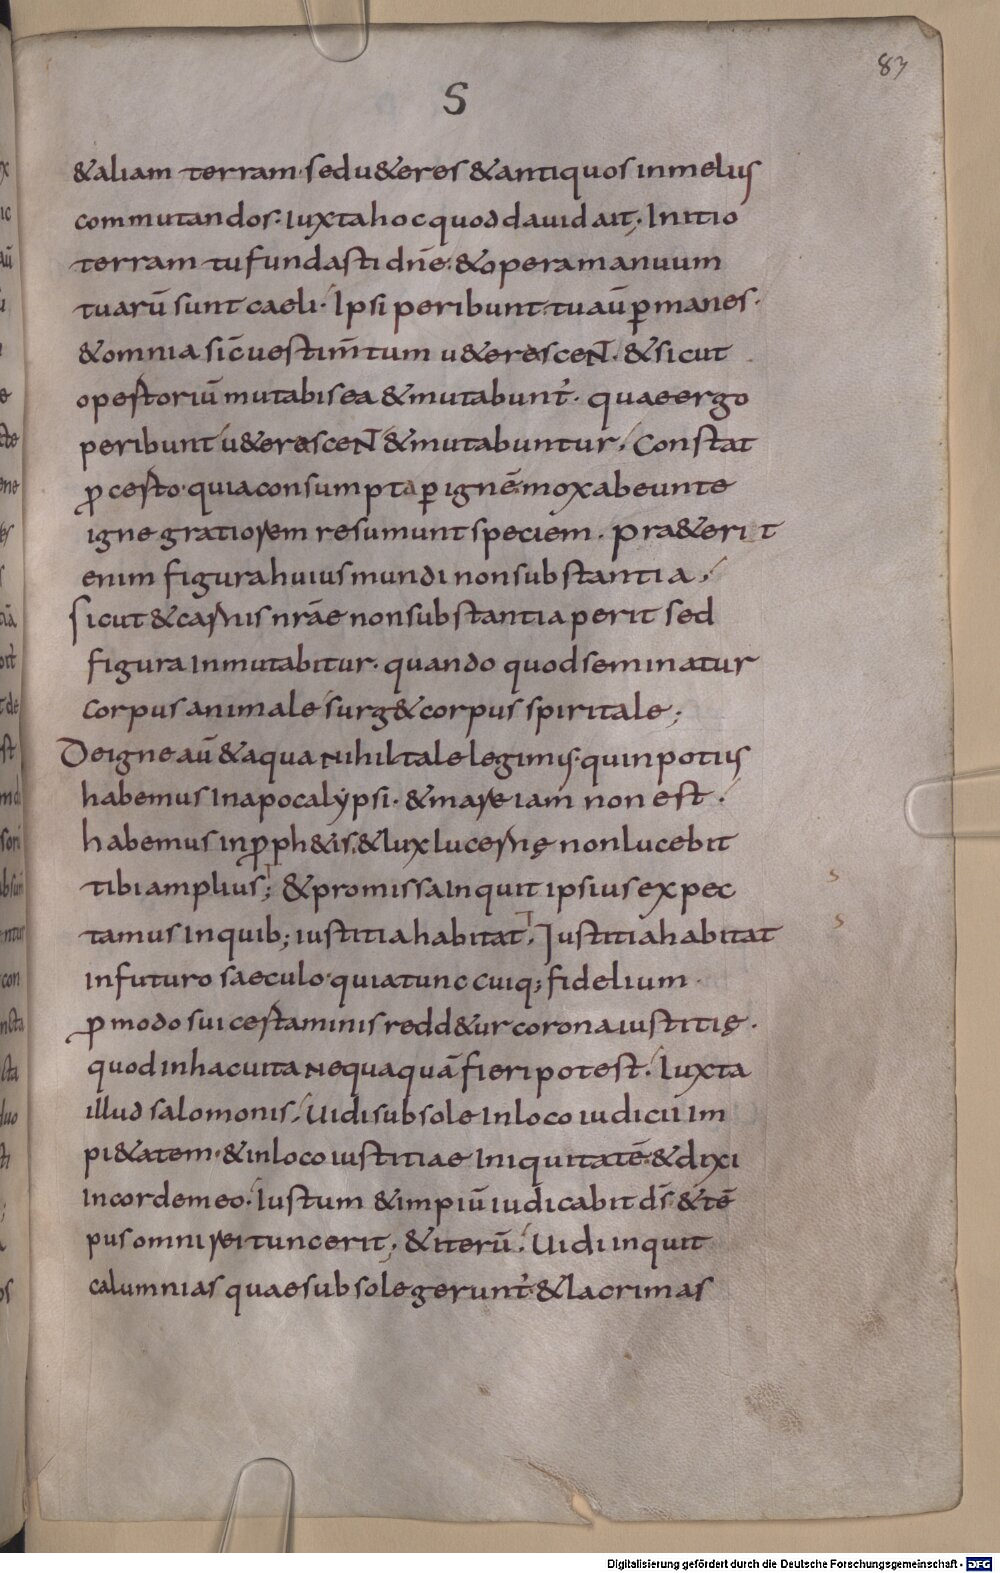 83
S
&aliam terram· sed u&eres &antiquos inmelius
commutandos· iuxta hoc quod dauid ait· Initio
terram tu fundasti dn̄e· &opera manuum
tuarū sunt caeli· Ipsi peribunt tu aū ꝑmanes·
&omnia sic̄ uestim̄tum u&erascent· &sicut
opestoriū mutabis ea &mutabunt᷒· quae ergo
peribunt u&erascent &mutabuntur· Constat
ꝓ cesto· quia consumpta ꝑ ignē· mox abeunte
igne gratiorem resumunt speciem· Pra&erit
enim figura huius mundi non substantia·
sicut &carnis nrāe non substantia perit sed
figura inmutabitur· quando quod seminatur
corpus animale surg& corpus spiritale;
De igne aū &aqua nihil tale legimus· quin potius
habemus in apocalypsi· &mare iam non est·
habemus in ꝓph&is· &lux lucernę non lucebit
tibi amplius; &promissa inquit ipsius expec
tamus in quib; iustitia habitat· Iustitia habitat
in futuro saeculo· quia tunc cuiq; fidelium·
ꝓ modo sui cestaminis redd&ur corona iustitię·
quod in hac uita nequaquā fieri potest· Iuxta
illud salomonis· Uidi sub sole in loco iudicii im
pi&atem· &in loco iustitiae iniquitatē· &dixi
in corde meo· Iustum &impiū iudicabit ds̄ &tē
pus omni rei tunc erit· &iterū· Uidi inquit
calumnias quae sub sole gerunt᷒ &lacrimas
Digitalisierung gefördert durch die Deutsche Forschungsgemeinschaft - DFG